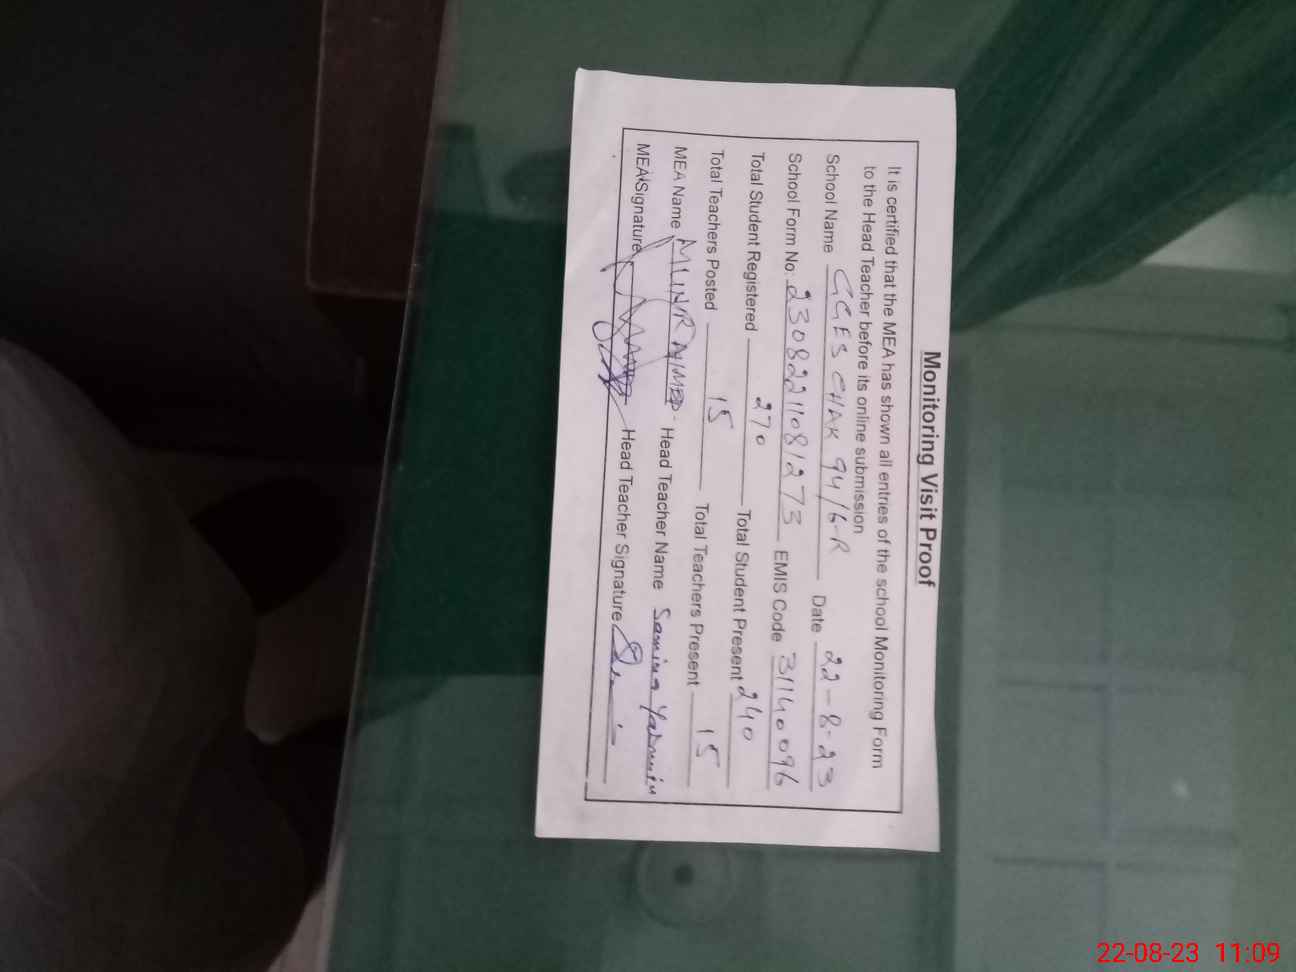 Monitoring Visit Proof
It is certified that the MEA has shown all entries of the school Monitoring Form
to the Head Teacher before its online submission
School Name GGES CHAK 94/6-R Date 22-8-23
School Form No: 23082211081273 EMIS Code 31140096
Total Student Registered 270 Total Student Present 240
Total Teachers Posted 15 Total Teachers Present 15
MEA Name MUNIR AHMED Head Teacher Name Samina Yasmin
MEA Signature Head Teacher Signature
22-08-23 11:09